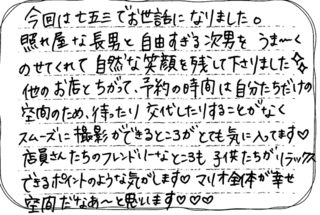 今回は七五三でお世話になりました。
照れ屋な長男と自由すぎる次男を うま〜く
のせてくれて自然な笑顔を残して下さりました✧
他のお店とちがって、予約の時間は自分たちだけの
空間のため、待ったり 交代したりすることがなく
スムーズに撮影ができるところがとても気に入ってます♡
店員さんたちのフレンドリーなところも 子供たちがリラックス
できるポイントのような気がします♡ マリオ全体が幸せ
空間だなあ〜と思います♡♡♡